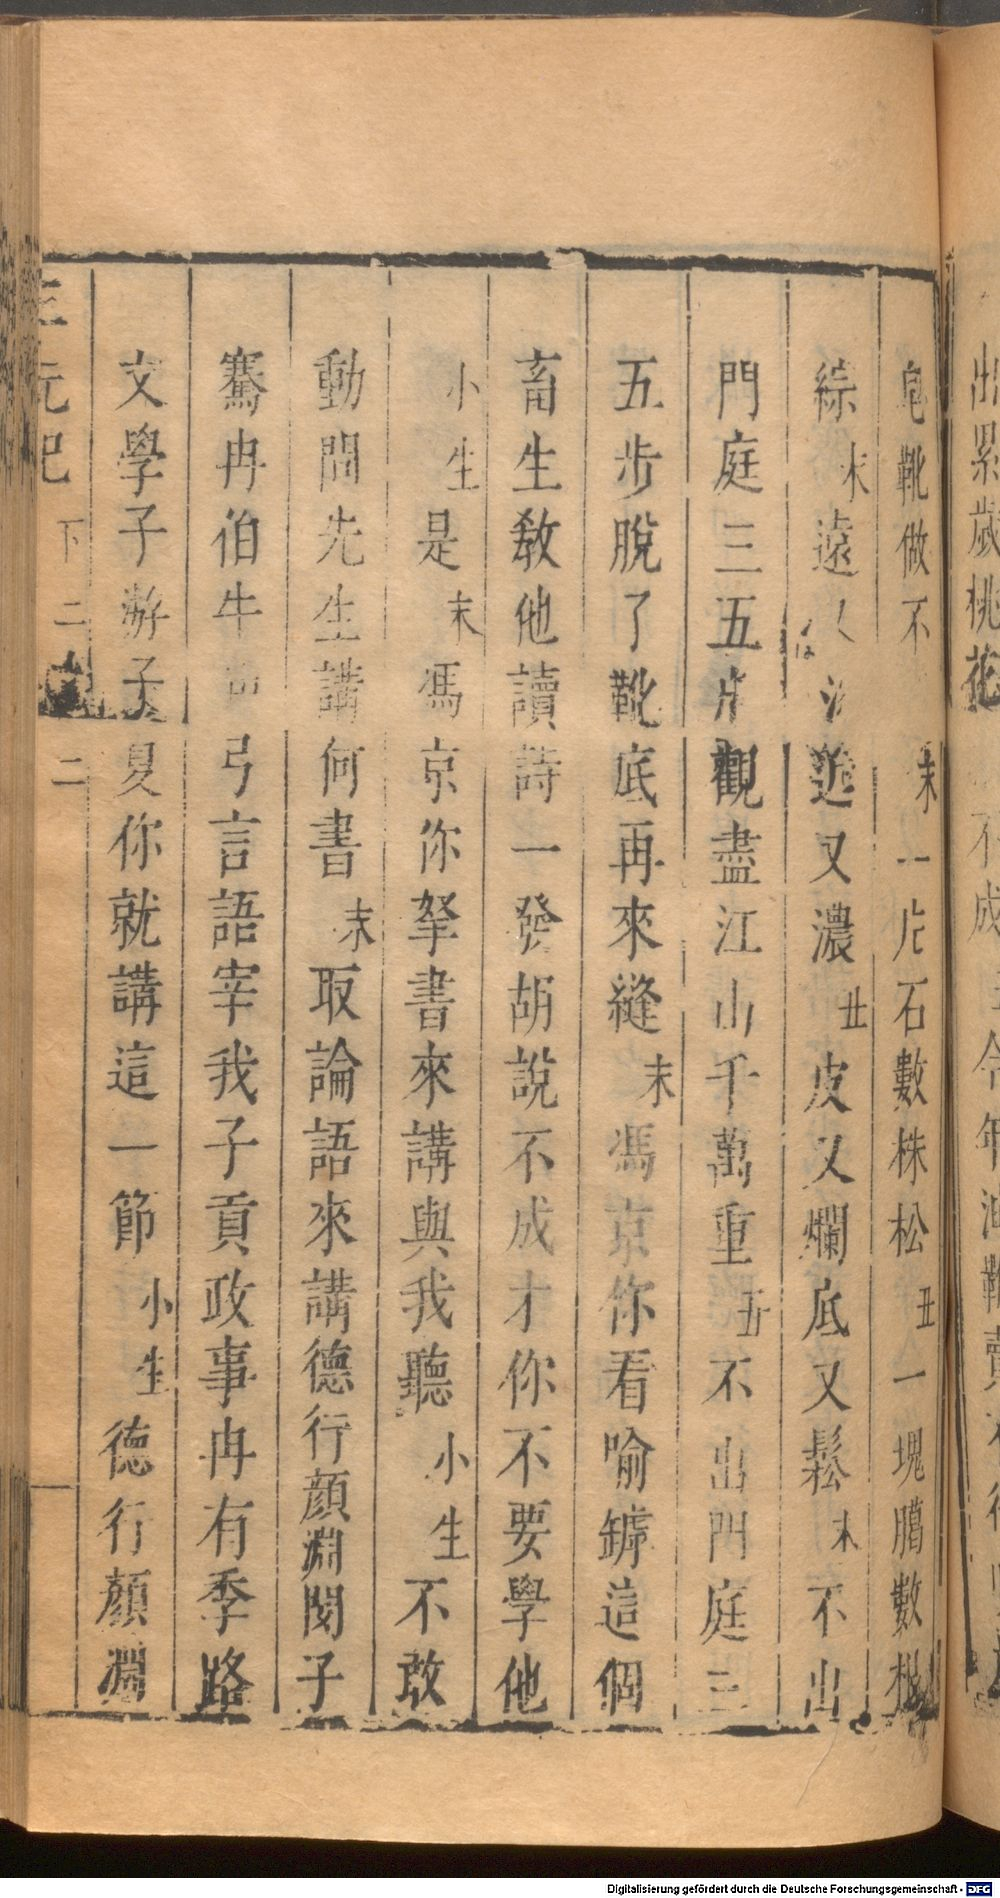 皂靴做不末一片石數株松丑一塊鞔數根
綜末遠又濃丑皮又爛底又鬆末不出
門庭三五步觀盡江山千萬重丑不出門庭三
五步脫了靴底再來縫末馮京你看喻罅這個
畜生教他讀詩一發胡說不成才你不要學他
小生是末馮京你拏書來講與我聽小生不敢
動問先生講何書末取論語來講德行顔淵閔子
騫冉伯牛弓言語宰我子貢政事冉有季路
文學子游子夏你就講這一節小生德行顔淵
三元記 下 二 二
出累歲桃花不成今年
Digitalisierung gefördert durch die Deutsche Forschungsgemeinschaft - DFG